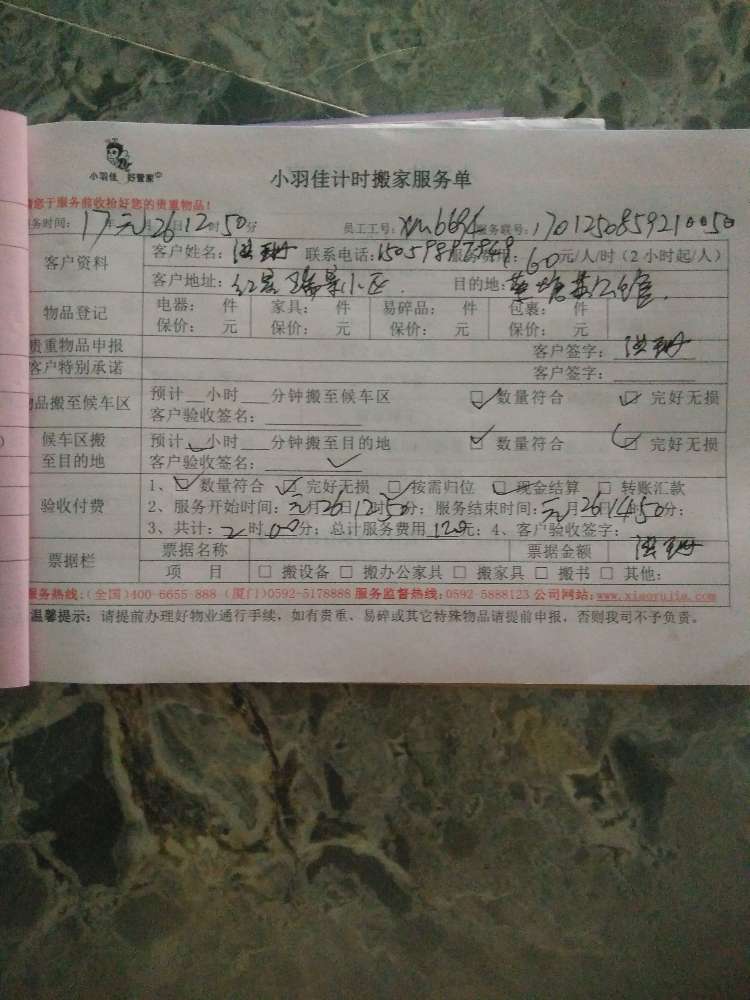 小羽佳 好管家
小羽佳计时搬家服务单
请您于服务前收拾好您的贵重物品!
务时间: 17年元月26日12时50分 员工工号: xm6694 服务联号: 1701250859210050
客户资料 客户姓名: 洪 联系电话: 服务费用: 60元/人/时(2小时起/人)
客户地址: 红星瑞景小区. 目的地:
物品登记 电器: 件 家具: 件 易碎品: 件 包裹: 件
保价: 元 保价: 元 保价: 元 保价: 元
贵重物品申报 客户签字: 洪
客户特别承诺 客户签字:
品搬至候车区 预计__小时___分钟搬至候车区 数量符合 完好无损
客户验收签名:
候车区搬至目的地 预计__小时___分钟搬至目的地 数量符合 完好无损
客户验收签名:
验收付费 1、数量符合 完好无损 按需归位 现金结算 转账汇款
2、服务开始时间: 元月26日12时50分; 服务结束时间: 元月26日14时50分;
3、共计: 2时00分; 总计服务费用120元; 4、客户验收签字: 洪
票据栏 票据名称 票据金额
项 目 搬设备 搬办公家具 搬家具 搬书 其他:
服务热线:(全国)400-6655-888 (厦门)0592-5178888 服务监督热线:0592-5888123 公司网站:www.xiaoyujia.com
温馨提示: 请提前办理好物业通行手续, 如有贵重、易碎或其它特殊物品请提前申报, 否则我司不予负责。